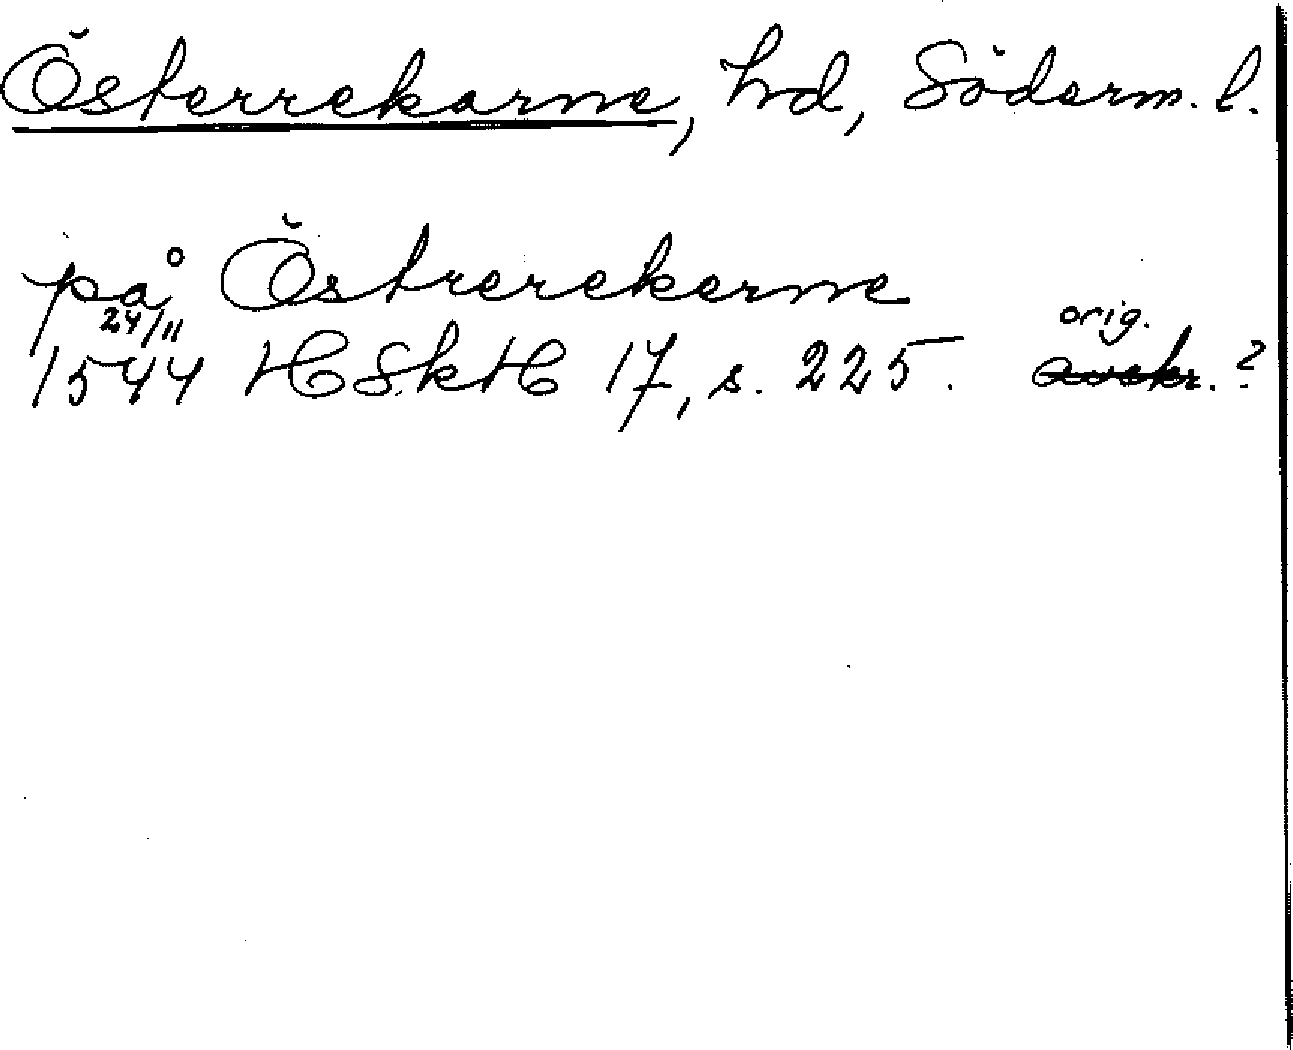 Österrekarne, hd, Söderm. l.
på Östrerekerne
24/11 orig.
1544 HSkH 17, s. 225. avskr. ?